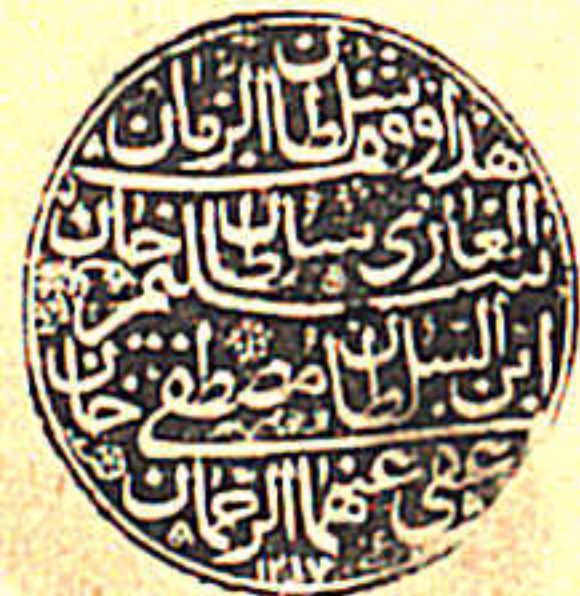 هذا وقف سلطان الزمان
الغازی سلطان سلیم خان
ابن السلطان مصطفی خان
عفی عنهما الرحمان
۱۲۱۷